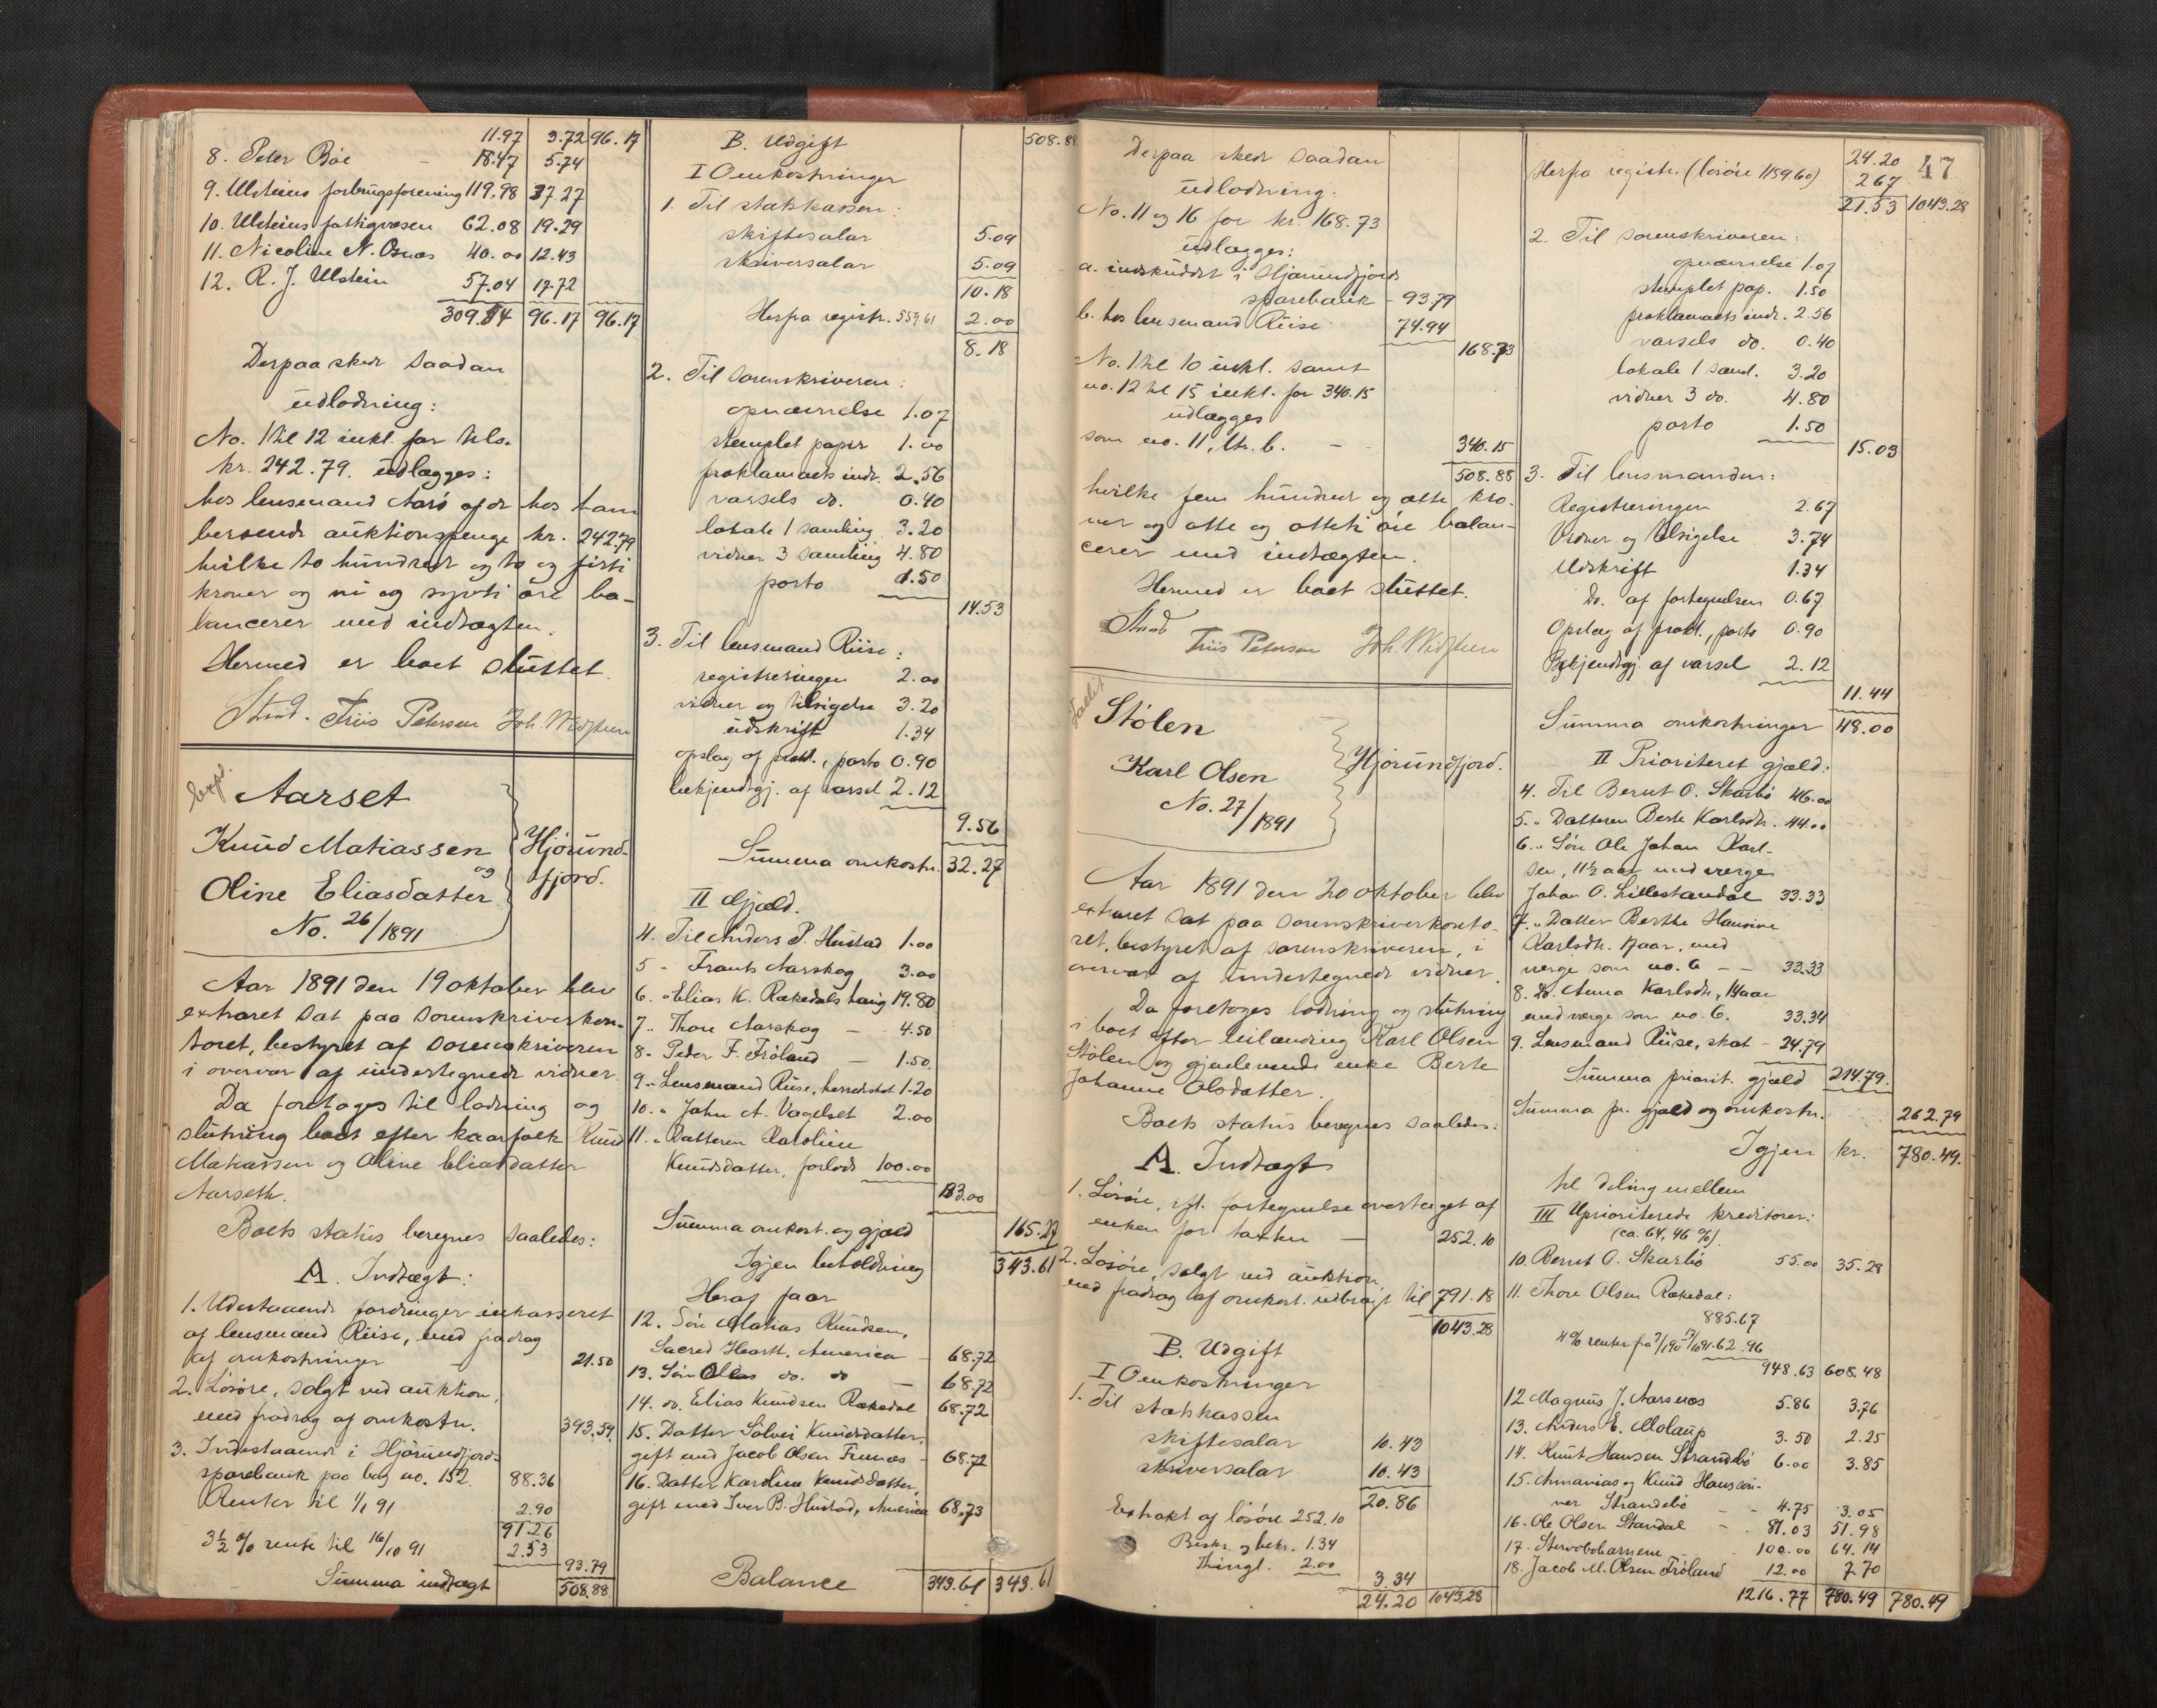 11.97 3.72 96.17
8. Peter Böe - 18.47 5.74
9. Ulsteins forbrugsforening 119.98 37.27
10. Ulsteins fattigvæsen 62.08 19.29
11. Nicoline N. Osnæs 40.00 12.43
12. R. J. Ulstein 57.04 17.72
309.54 96.17 96.17
Derpaa skedr saadan
udlodning:
No. 1 til 12 inkl. for tils.
kr. 242.79. udlægges:
hos lensmand Aarö af de hos ham
beroende auktionspenge kr. 242.79
hvilke to hundrede og to og firti
kroner og ni og sytti öre ba-
lancerer med indtægten.
Hermed er boet sluttet.
Friis Petersen Joh. Widsteen
exp.
Aarset
Knud Matiassen
og
Oline Eliasdatter
No. 26/1891
Hjörund-
fjord.
Aar 1891 den 19 oktober blev
extraret sat paa sorenskriverkon-
toret, bestyret af sorenskriveren
i overvær af undertegnede vidner.
Da foretoges til lodning og
slutning boet efter kaarfolk Knud
Matiassen og Oline Eliasdatter
Aarseth.
Boets status beregnes saaledes:
A. Indtægt:
1. Udestaaende fordringer inkasseret
af lensmand Riise, med fradrag
af omkostninger - 21.50
2. Lösöre, solgt ved auktion,
med fradrag af omkostn. 393.59
3. Indestaaende i Hjörundfjords
sparebank paa bog no. 152. 88.36
Renter til 1/1 91 2.90
91.26
3½ % rente til 16/10 91 2.53
93.79
Summa indtægt 508.88
B. Udgift 508.88
I Omkostninger
1. Til statskassen:
skiftesalær 5.09
skriversalær 5.09
10.18
Herfra registr. 559.61 2.00
8.18
2. Til sorenskriveren:
opnævnelse 1.07
stemplet papir 1.00
proklamaets indr. 2.56
varsels do. 0.40
lokale 1 samling 3.20
vidner 3 samling 4.80
porto 1.50
14.53
3. Til lensmand Riise:
registreringen 2.00
vidner og tilsigelse 3.20
udskrift 1.34
opslag af prokl., porto 0.90
bekjendtgj. af varsel 2.12
9.56
Summa omkostn. 32.27
II Gjæld.
4. Til Anders P. Hustad 1.00
5 " Frants Aarskog 3.00
6. " Elias K. Rækedals 19.80
7. " Thore Aarskog - 4.50
8 - Peder F. Fröland - 1.50
9. " Lensmand Riise, herredsskat 1.20
10. " John A. Vagelset 2.00
11. " Datteren Karoline
Knudsdatter, forlods 100.00
133.00
Summa omkost. og gjæld 165.27
Igjen beholdning 343.61
Heraf faar
12. Sön Matias Knudsen,
Sacred Heart, America - 68.72
13. Sön Oles do. do - 68.72
14. do. Elias Knudsen Rækedal 68.72
15. Datter Sölvei Knudsdatter,
gift med Jacob Olsen - 68.72
16. Datter Karoline Knudsdatter,
gift med Iver B. Hustad, America 68.73
Balance 343.61 343.61
Derpaa skedr saadan
udlodning.
No. 11 og 16 for kr. 168.73
udlægges:
a. indskuddet i Hjörundfjords
sparebank - 93.79
b. hos lensmand Riise 74.94
168.73
No. 1 til 10 inkl. samt
no. 12 til 15 inkl. for 340.15
udlægges
som no. 11, ltr. b. - 340.15
508.88
hvilke fem hundrede og otte kro-
ner og otte og otteti öre balan-
cerer med indtægten.
Hermed er boet sluttet.
Friis Petersen Joh. Widsteen
Fallit
Stölen
Karl Olsen
No. 27/1891
Hjörundfjord.
Aar 1891 den 20 oktober blev
extraret sat paa sorenskriverkonto-
ret, bestyret af sorenskriveren, i
overvær af undertegnede vidner.
Da foretoges lodning og slutning
i boet efter leilænding Karl Olsen
Stölen og gjenlevende enke Berte
Johanne Olsdatter.
Boets status beregnes saaledes:
A. Indtægt
1. Lösöre, ifl. fortegnelse overtaget af
enken for taxten - 252.10
2. Lösöre, solgt ved auktion,
med fradrag af omkost. udbragt til 791.18
1043.28
B. Udgift
I Omkostninger
1. Til statskassen
skiftesalær 10.43
skriversalær 10.43
20.86
Extrakt af lösöre 252.10
Beskr. og bekr. 1.34
Thingl. 2.00
3.34
24.20 1043.28
47
24.20
Herfra registr. (lösöre 1159.60) 2.67
21.53 1043.28
2. Til sorenskriveren:
opnævnelse 1.07
stemplet pap. 1.50
proklamaets indr. 2.56
varsels do. 0.40
lokale 1 saml. 3.20
vidner 3 do. 4.80
porto 1.50
15.03
3. Til lensmanden:
Registreringen 2.67
Vidner og tilsigelse 3.74
Udskrift 1.34
Do. af fortegnelsen 0.67
Opslag af prokl., porto 0.90
Bekjendtgj. af varsel 2.12
11.44
Summa omkostninger 48.00
II Prioriteret gjæld:
4. Til Bernt O. Skarbö 46.00
5. " Datteren Berte Karlsdtr. 44.00
6. " Sön Ole Johan Karl-
sen, 11½ aar med værge
Johan O. Lillestandal 33.33
7. " Datter Berthe Hansine
Karlsdtr. 17 aar, med
værge som no. 6 - - 33.33
8. Do. Anna Karlsdtr., 14 aar
med værge som no. 6. 33.34
9. Lensmand Riise, skat - 24.79
Summa priorit. gjæld 214.79.
Summa pr. gjæld og omkostn. 262.79
Igjen kr. 780.49.
til deling mellem
III Uprioriterede kreditorer:
(ca. 64,46 %).
10. Bernt O. Skarbö 55.00 35.28
11. Thore Olsen Rækedal:
885.67
4% renter fra 62.96
948.63 608.48
12 Magnus J. Aarsnæs 5.86 3.76
13. Anders E. Molaup 3.50 2.25
14. Knut Hansen Strandebö 6.00 3.85
15. Ananias og Knud Hanssön-
ner Strandebö - - 4.75 3.05
16. Ole Olsen Standal - - 81.03 51.98
17. Stervbobarnene - 100.00 64.14
18. Jacob M. Olsen Fröland 12.00 7.70
1216.77 780.49 780.49